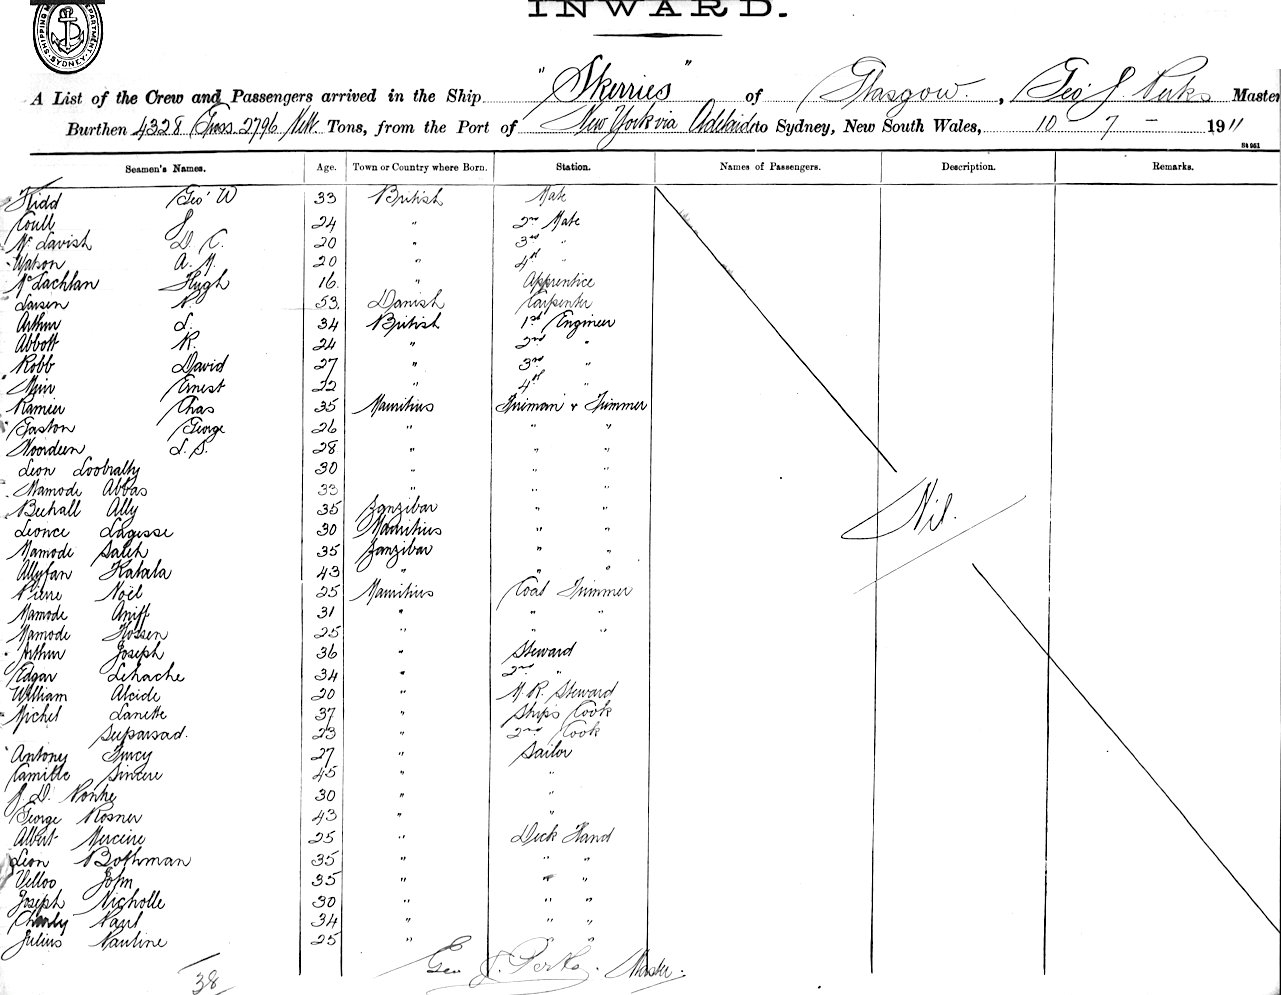 INWARD.
SHIPPING MASTER'S DEPARTMENT SYDNEY
A List of the Crew and Passengers arrived in the Ship "Skerries" of Glasgow, Geo J Perks Master
Burthen 4328 Gross 2796 Nett Tons, from the Port of New York via Adelaide to Sydney, New South Wales, 10 - 7 - 1911
St 961
Seamen's Names. Age. Town or Country where Born. Station. Names of Passengers. Description. Remarks.
Kidd Geo W 33 British Mate
Coull J 24 " 2nd Mate
McLavish D. C. 20 " 3rd "
Watson A. M. 20 " 4th "
McLachlan Hugh 16 " Apprentice
Larsen N. 53 Danish Carpenter
Arthur L. 34 British 1st Engineer
Abbott R. 24 " 2nd "
Robb David 27 " 3rd "
Muir Ernest 22 " 4th "
Rameer Chas 35 Mauritius Fireman & Trimmer
Gaston George 26 " " "
Noordeen L. S. 28 " " "
Leon Loobratty 30 " " "
Mamode Abbas 33 " " "
Beehall Ally 35 Zanzibar " "
Leonce Lagesse 30 Mauritius " "
Mamode Saleh 35 Zanzibar " "
Allyfan Katala 43 " " "
Pierre Noël 25 Mauritius Coal Trimmer
Mamode Aniff 31 " " "
Mamode Hossen 25 " " "
Arthur Joseph 36 " Steward
Edgar Lehache 34 " 2nd "
William Alcide 20 " M. R. Steward
Michel Lanette 37 " Ships Cook
Suparsad. 23 " 2nd Cook
Antony Furcy 27 " Sailor
Camille Sincere 45 " "
J. D. Ponke 30 " "
George Rosner 43 " "
Albert Merceire 25 " Deck Hand
Leon Bothman 35 " " "
Velloo John 35 " " "
Joseph Nicholle 30 " " "
Charly Paul 34 " " "
Julius Pauline 25 " " "
Nil.
Geo J. Perks. Master.
38